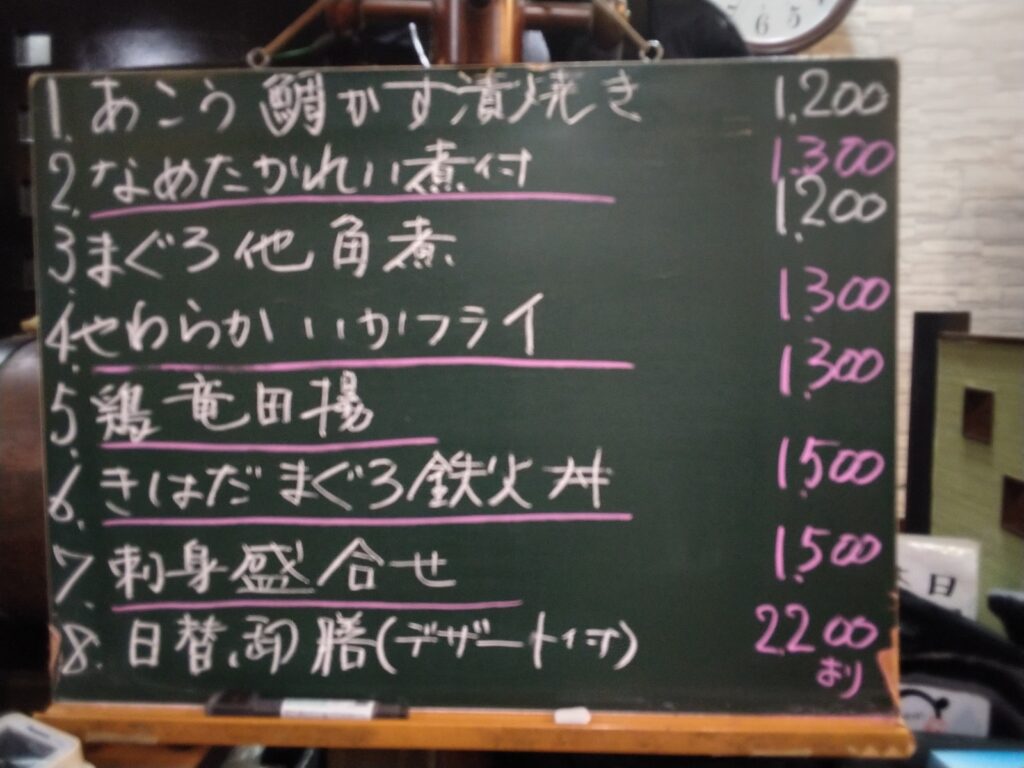 1. あこう鯛かす漬焼き 1,200
2. なめたがれい煮付 1,300
3. まぐろ他角煮 1,200
4. やわらかいかフライ 1,300
5. 鶏竜田揚 1,300
6. きはだまぐろ鉄火丼 1,500
7. 刺身盛合せ 1,500
8. 日替御膳(デザート付) 2,200
おり
日
6 5